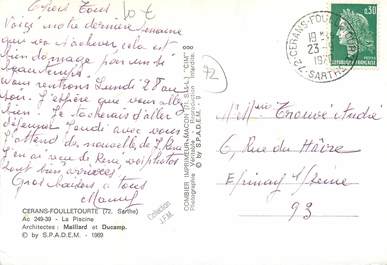 Chers Tous
10 €
Voici notre dernière semaine
qui va s'achever cela est
bien dommage par un si
beau temps.
Nous rentrons Lundi 28 au
soir. J'espère que vous allez
bien. Je tacherais d'aller
déjeuner Jeudi avec vous
J'attend des nouvelles de
J'ai reçu de René, vos photos
sont bien arrivées
Gros baisers à tous
Mamy
CERANS-FOULLETOURTE (72. Sarthe)
Ac 249-39 - La Piscine
Architectes : Maillard et Ducamp.
© by S.P.A.D.E.M. - 1969
Collection
J.F.M.
COMBIER IMPRIMEUR MACON (71. S.-&-L.) "CIM"
Photographie Véritable - Reproduction Interdite.
© by S.P.A.D.E.M.
72
72 - CERANS-FOULLETOURTE
SARTHE
0,30
REPUBLIQUE FRANCAISE
Mr Mme Trouvé André
6, Rue du Hâvre
Epinay s/ Seine
93